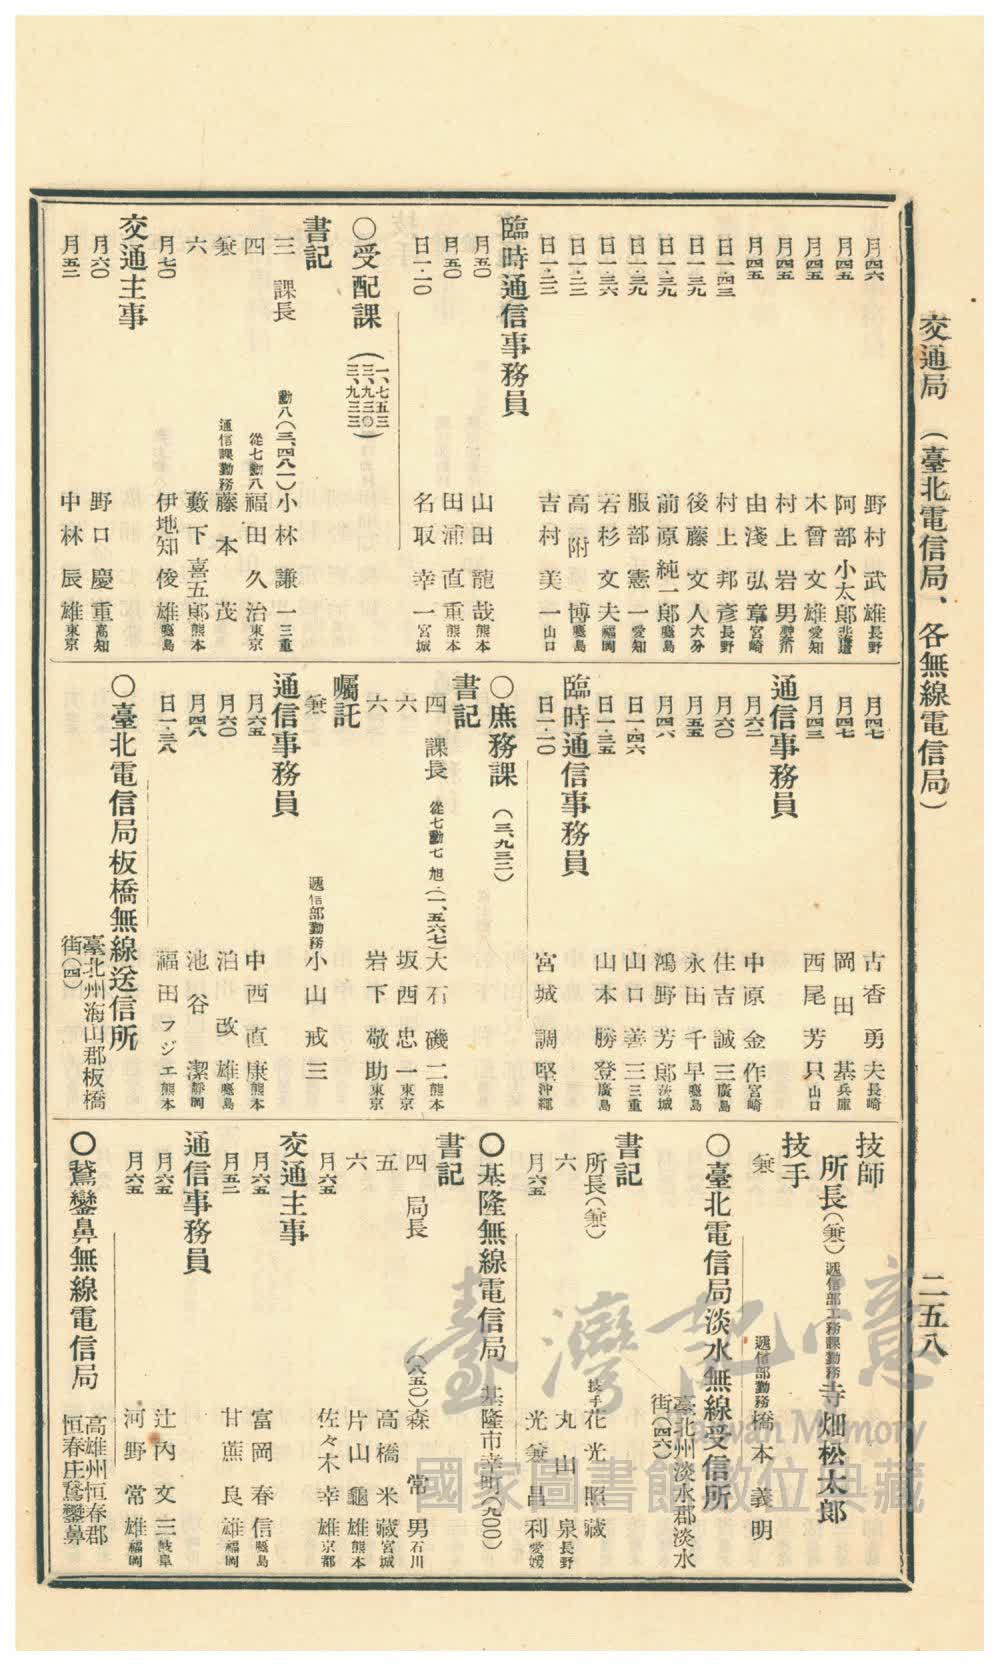 交通局　（臺北電信局、各無線電信局）　二五八
月四六　野村武雄　長野
月四五　阿部小太郎　北海道
月四五　木曾文雄　愛知
月四五　村上岩男　神奈川
月四五　由淺弘章　宮崎
日一・四三　村上邦彥　長野
日一・三九　後藤文人　大分
日一・三九　前原純一郎　鹿兒島
日一・三九　服部憲一　愛知
日一・三六　若杉文夫　福岡
日一・二二　高附博　鹿兒島
日一・二二　吉村美一　山口
臨時通信事務員
月五〇　山田龍哉　熊本
月五〇　田浦直重　熊本
日一・二〇　名取幸一　宮城
〇受配課　（一、七五三　三、九三〇　三、九三三）
書記
三　課長　勳八（三、四八一）小林謙一　三重
四　從七勳八　福田久治　東京
兼　通信課勤務　藤本茂
六　藪下喜五郎　熊本
月七〇　伊地知俊雄　鹿兒島
交通主事
月六〇　野口慶重　高知
月五二　中林辰雄　東京
月四七　古香勇夫　長崎
月四七　岡田基　兵庫
月四三　西尾芳只　山口
通信事務員
月六二　中原金作　宮崎
月六〇　住吉誠三　廣島
月五五　永田千早　鹿兒島
月四六　鴻野芳郎　茨城
日一・四六　山口善三　三重
日一・三五　山本勝登　廣島
臨時通信事務員
日一・二〇　宮城調堅　沖繩
〇庶務課　（三、九三二）
書記
四　課長　從七勳七　旭・（一、五六七）大石磯二　熊本
六　坂西忠一　東京
六　岩下敬助　東京
囑託
兼　遞信部勤務　小山戒三
通信事務員
月六五　中西直康　熊本
月六〇　泊改雄　鹿兒島
月四八　池谷潔　靜岡
日一・三八　福田フジエ　熊本
〇臺北電信局板橋無線送信所　臺北州海山郡板橋
街（四）
技師
所長（兼）遞信部工務課勤務　寺畑松太郎
技手
兼　遞信部勤務　橋本義明
〇臺北電信局淡水無線受信所　臺北州淡水郡淡水
街（四六）
書記
所長（兼）　技手　花光照藏
六　丸山泉　長野
月六五　光兼昌利　愛媛
〇基隆無線電信局　基隆市幸町（九〇〇）
書記
四　局長　（八五〇）森常男　石川
五　高橋米藏　宮城
六　片山龜雄　熊本
月六五　佐々木幸雄　京都
交通主事
月六五　富岡春信　鹿兒島
月五二　甘蔗良雄　福岡
通信事務員
月六五　辻內文三　岐阜
月六五　河野常雄　福岡
〇鵞鑾鼻無線電信局　高雄州恒春郡
恒春庄鵞鑾鼻
臺灣記憶
Taiwan Memory
國家圖書館數位典藏